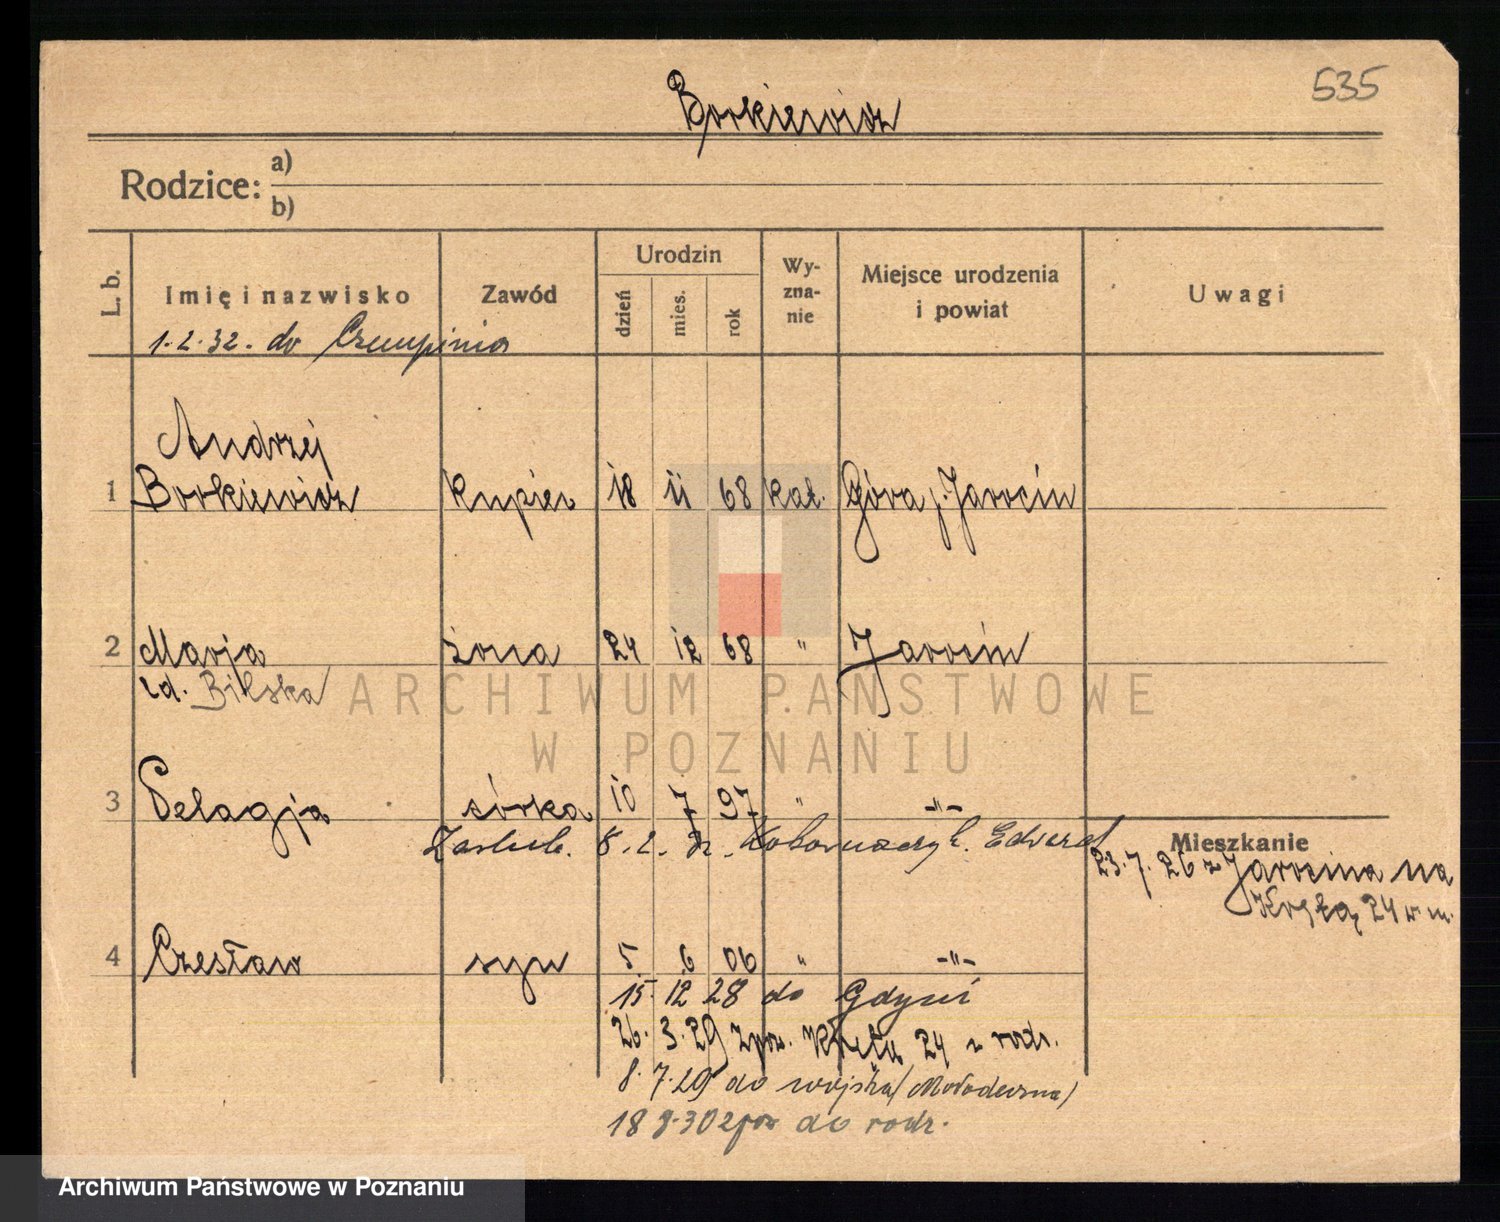 535
Borkiewicz
Rodzice: a)
b)
L. b. Imię i nazwisko Zawód Urodzin dzień mies. rok Wy-zna-nie Miejsce urodzenia i powiat Uwagi
1.2.32. do Czempinia
Andrzej
1 Borkiewicz kupiec 18 11 68 kat. Góra p. Jarocin
2 Marja żona 24 12 68 " Jarocin
zd. Bilska
ARCHIWUM PAŃSTWOWE
W POZNANIU
3 Pelagja córka 10 7 97 " -"-
Zaślub. 8.2. Edward
Mieszkanie
23.7.26 z Jarocina na
24 w m.
4 Czesław syn 5 6 06 " -"-
15 12 28 do Gdyni
26. 3. 29 zpow. 24 z rodz.
8.7.29 do wojska (Mołodeczna)
18 9.30 zpow do rodz.
Archiwum Państwowe w Poznaniu